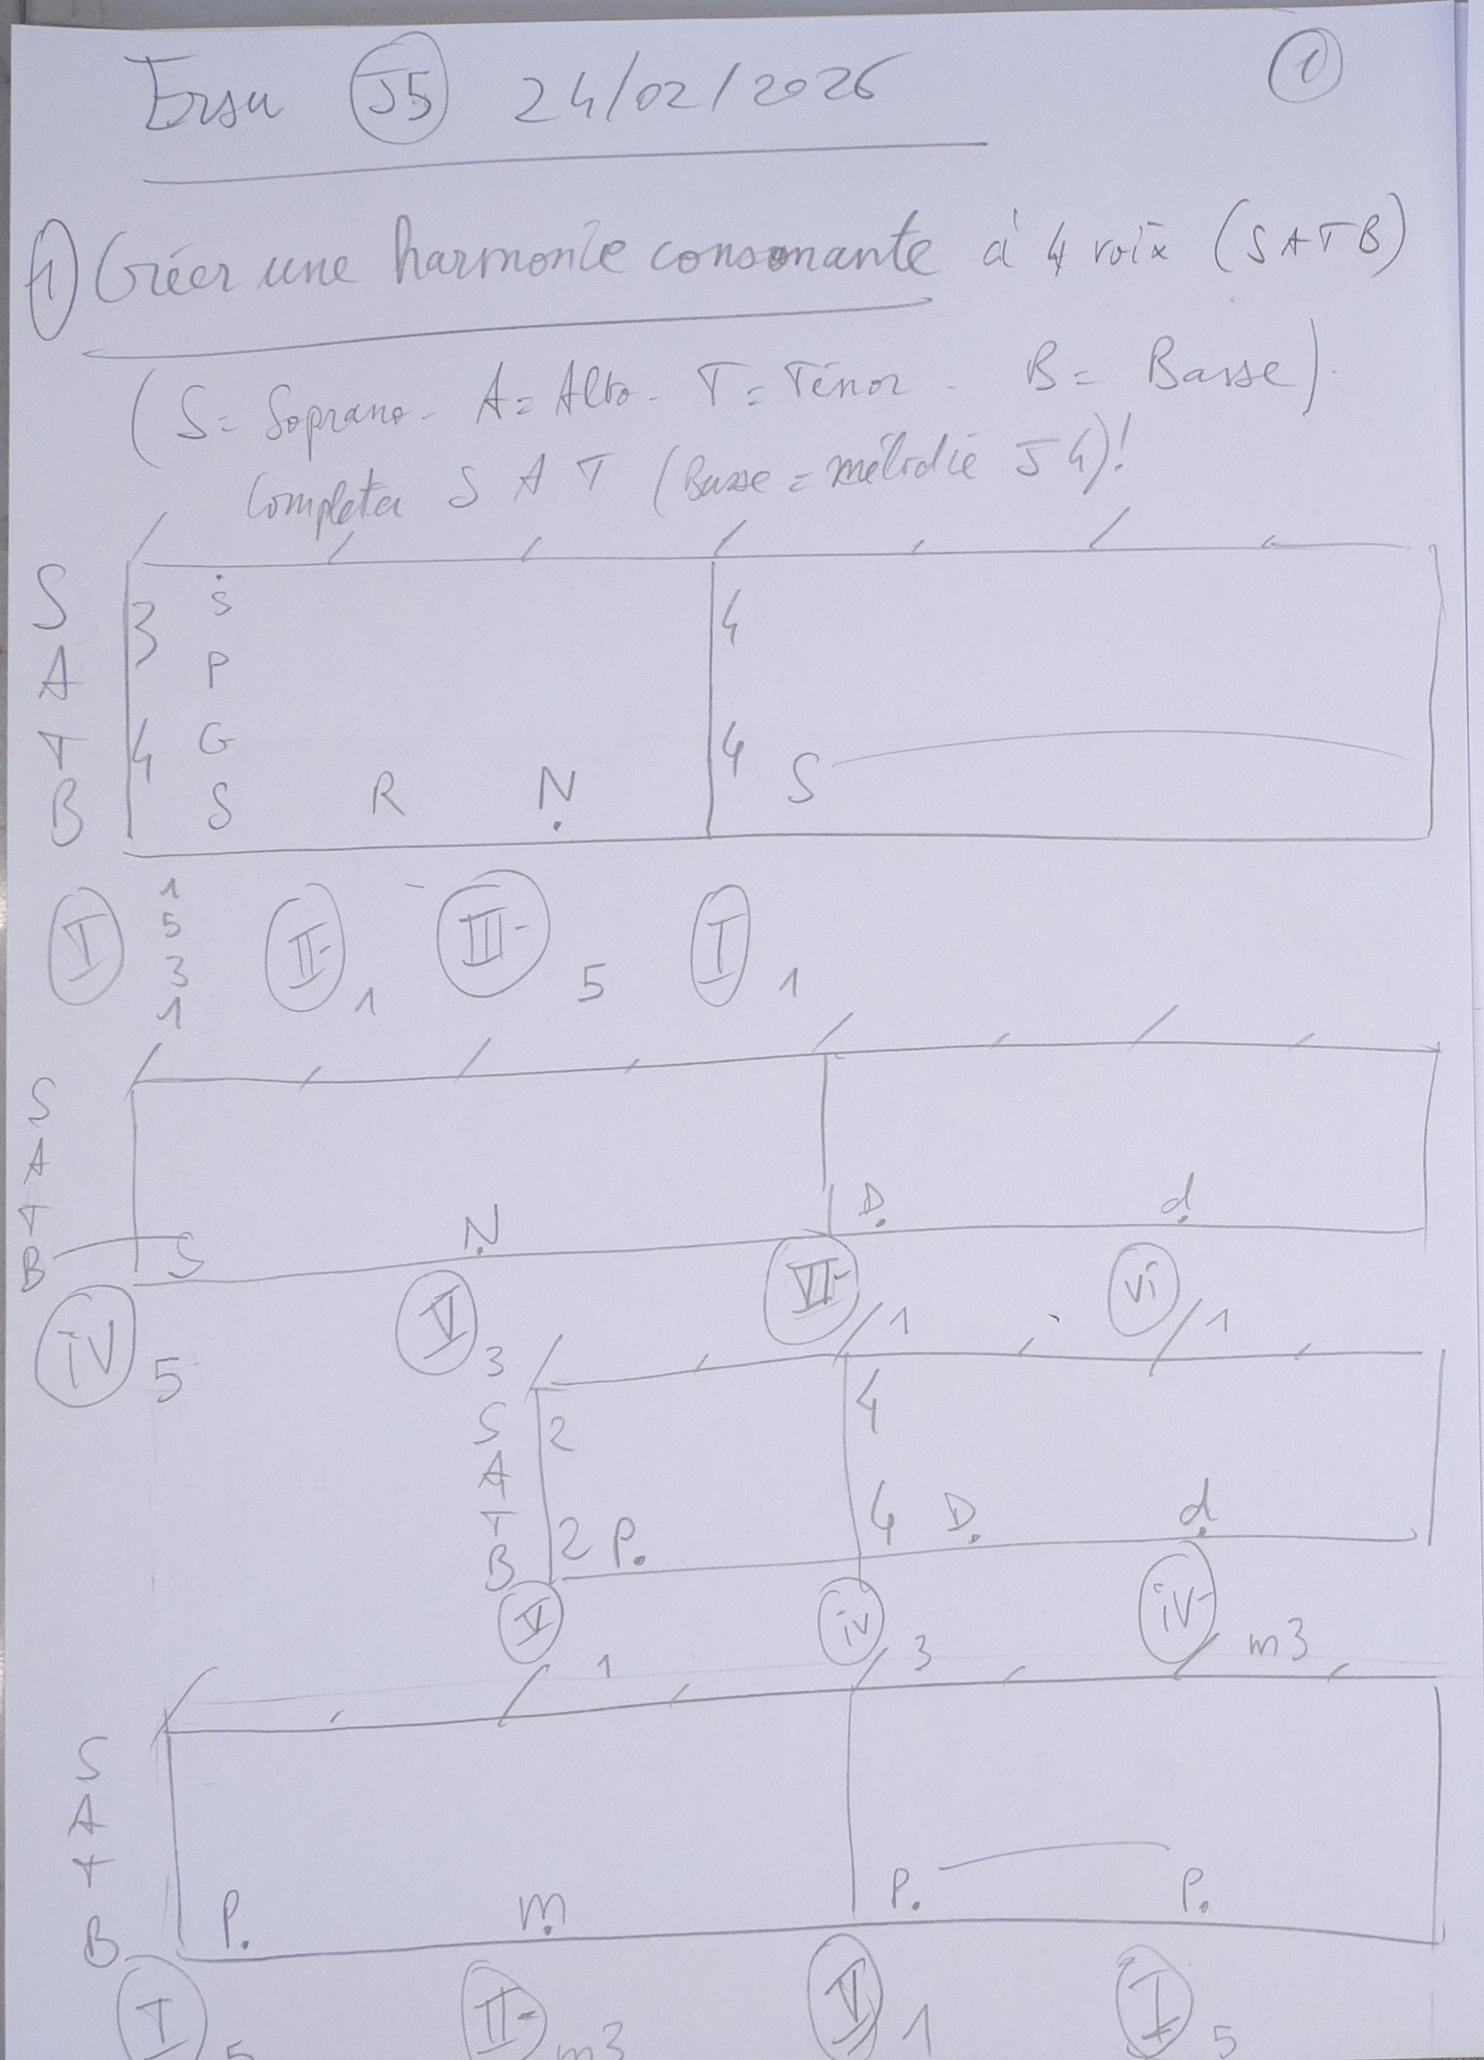 Ersu J5 24/02/2026 1
1 Créer une harmonie consonante à 4 voix (SATB)
(S= Soprano - A= Alto - T= Ténor - B= Basse).
Completer S A T (Basse = mélodie J4)!
S 3 Ṡ 4
A P
T 4 G 4
B S R Ṇ S
I 1 5 3 1 II- 1 III- 5 I 1
S
A
T
B S Ṇ D. ḍ
IV 5 V 3 VII- 1 vi 1
S 2 4
A
T
B 2 P. 4 D. ḍ
V 1 iv 3 iv- m3
S
A
T
B P. ṃ P. P.
I 5 II- m3 V 1 I 5